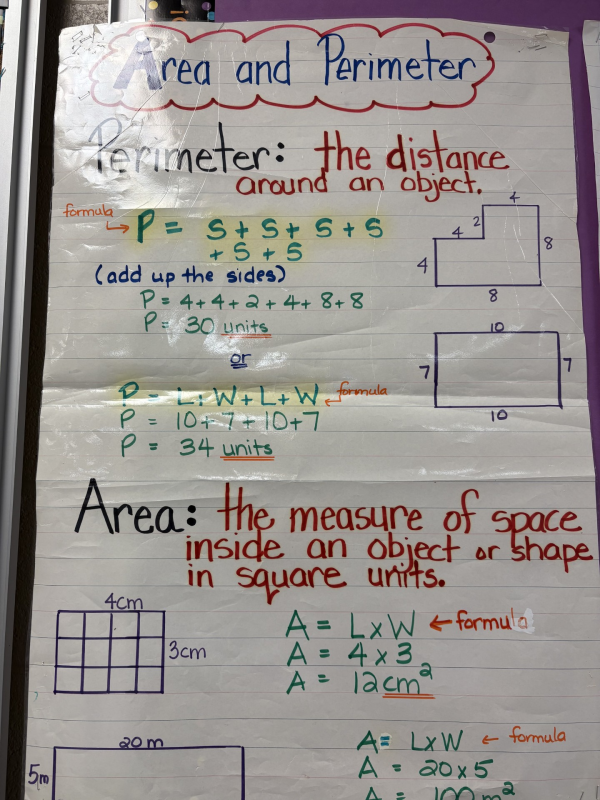 Area and Perimeter
Perimeter: the distance
around an object.
formula
P = S + S + S + S
+ S + S
(add up the sides)
P = 4+4+2+4+8+8
P = 30 units
4
2
4
4
8
8
or
P = L + W + L + W
formula
P = 10+7+10+7
P = 34 units
10
7
7
10
Area: the measure of space
inside an object or shape
in square units.
4cm
3cm
A = L x W ← formula
A = 4 x 3
A = 12cm²
20 m
5m
A = L x W ← formula
A = 20x5
A = 100 m²